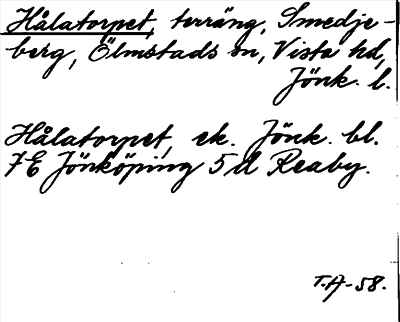 Hålatorpet, terräng, Smedje-
berg, Ölmstads sn, Vista hd,
Jönk. l.
Hålatorpet, ek. Jönk. bl.
7E Jönköping 5d Reaby.
T.A-58.